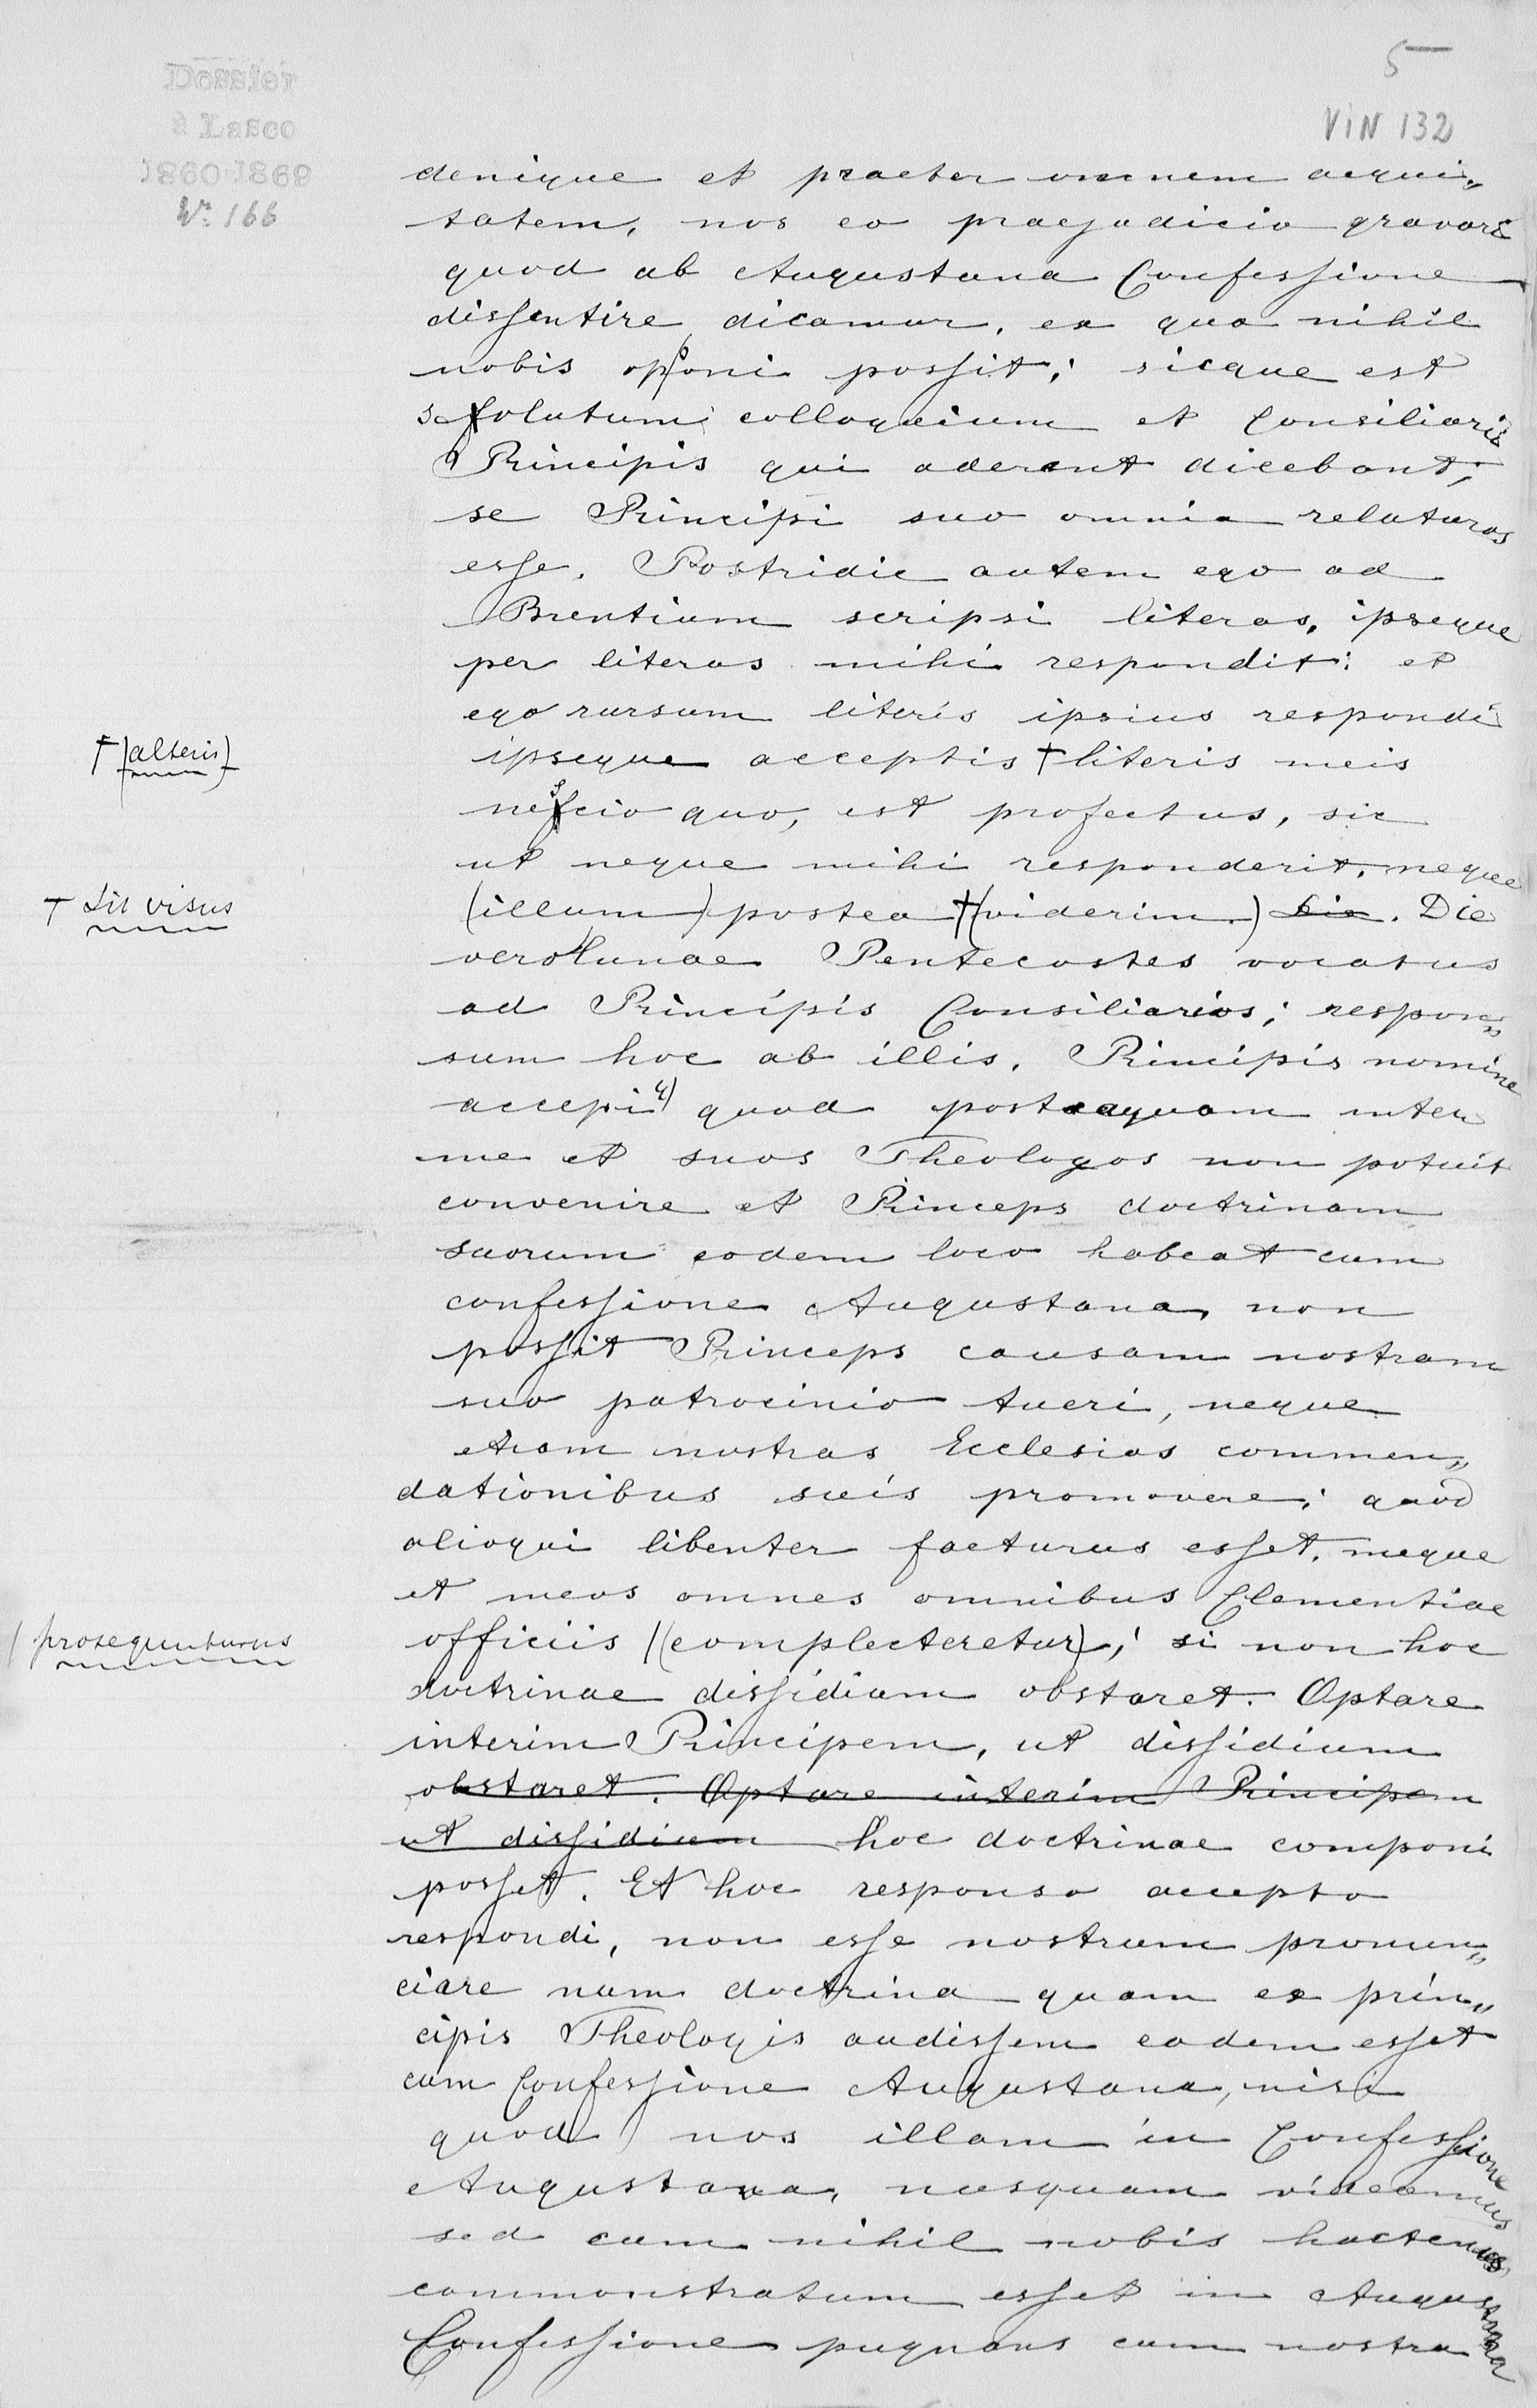 5
VIN 132
Dossier
à Lasco
1860-1869
No. 166
denique et praeter omnem aequi„
tatem, nos eo praejudicio gravari
quod ab Augustana Confessione
dissentire dicamur, ex qua nihil
nobis opponi possit; sicque est
solutum colloquium et Consiliarii
Principis qui aderant dicebant,
se Principi suo omnia relaturos
esse. Postridie autem ego ad
Brentium scripsi literas, ipseque
per literas mihi respondit: et
ego rursum literis ipsius respondi
† (alteris)
ipseque acceptis † literis meis
nescio quo, est profectus, sic
ut neque mihi responderit, neque
† sit visus
(illum) postea † (viderim.) Die. Die
vero Lunae Pentecostes vocatus
ad Principis Consiliarios; respon„
sum hoc ab illis, Principis nomine
accepi 4) quod posteaquam inter
me et suos Theologos non potuit
convenire et Princeps doctrinam
suorum eodem loco habeat cum
confessione Augustana, non
possit Princeps causam nostram
suo patrocinio tueri, neque
etiam nostras Ecclesias commen„
dationibus suis promovere; quod
alioqui libenter facturus esset, meque
et meos omnes omnibus Clementiae
/ prosequuturus
officiis /(complecteretur); si non hoc
doctrinae dissidium obstaret. Optare
interim Principem, ut dissidium
obstaret. Optare interim Principem
ut dissidium hoc doctrinae componi
posset. Et hoc responso accepto
respondi, non esse nostrum pronun„
ciare num doctrina quam ex prin„
cipis Theologis audissem eadem esset
cum Confessione Augustana, nisi
quod nos illam in Confessione
Augustana, nusquam videamus
sed cum nihil nobis hactenus
commonstratum esset in Augustana
Confessione pugnans cum nostra